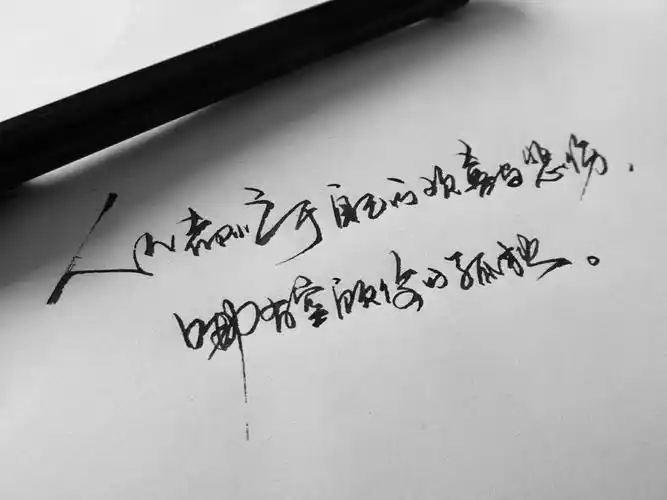 人人都忙于自己的欢喜与悲伤，
哪有空顾你的孤独。